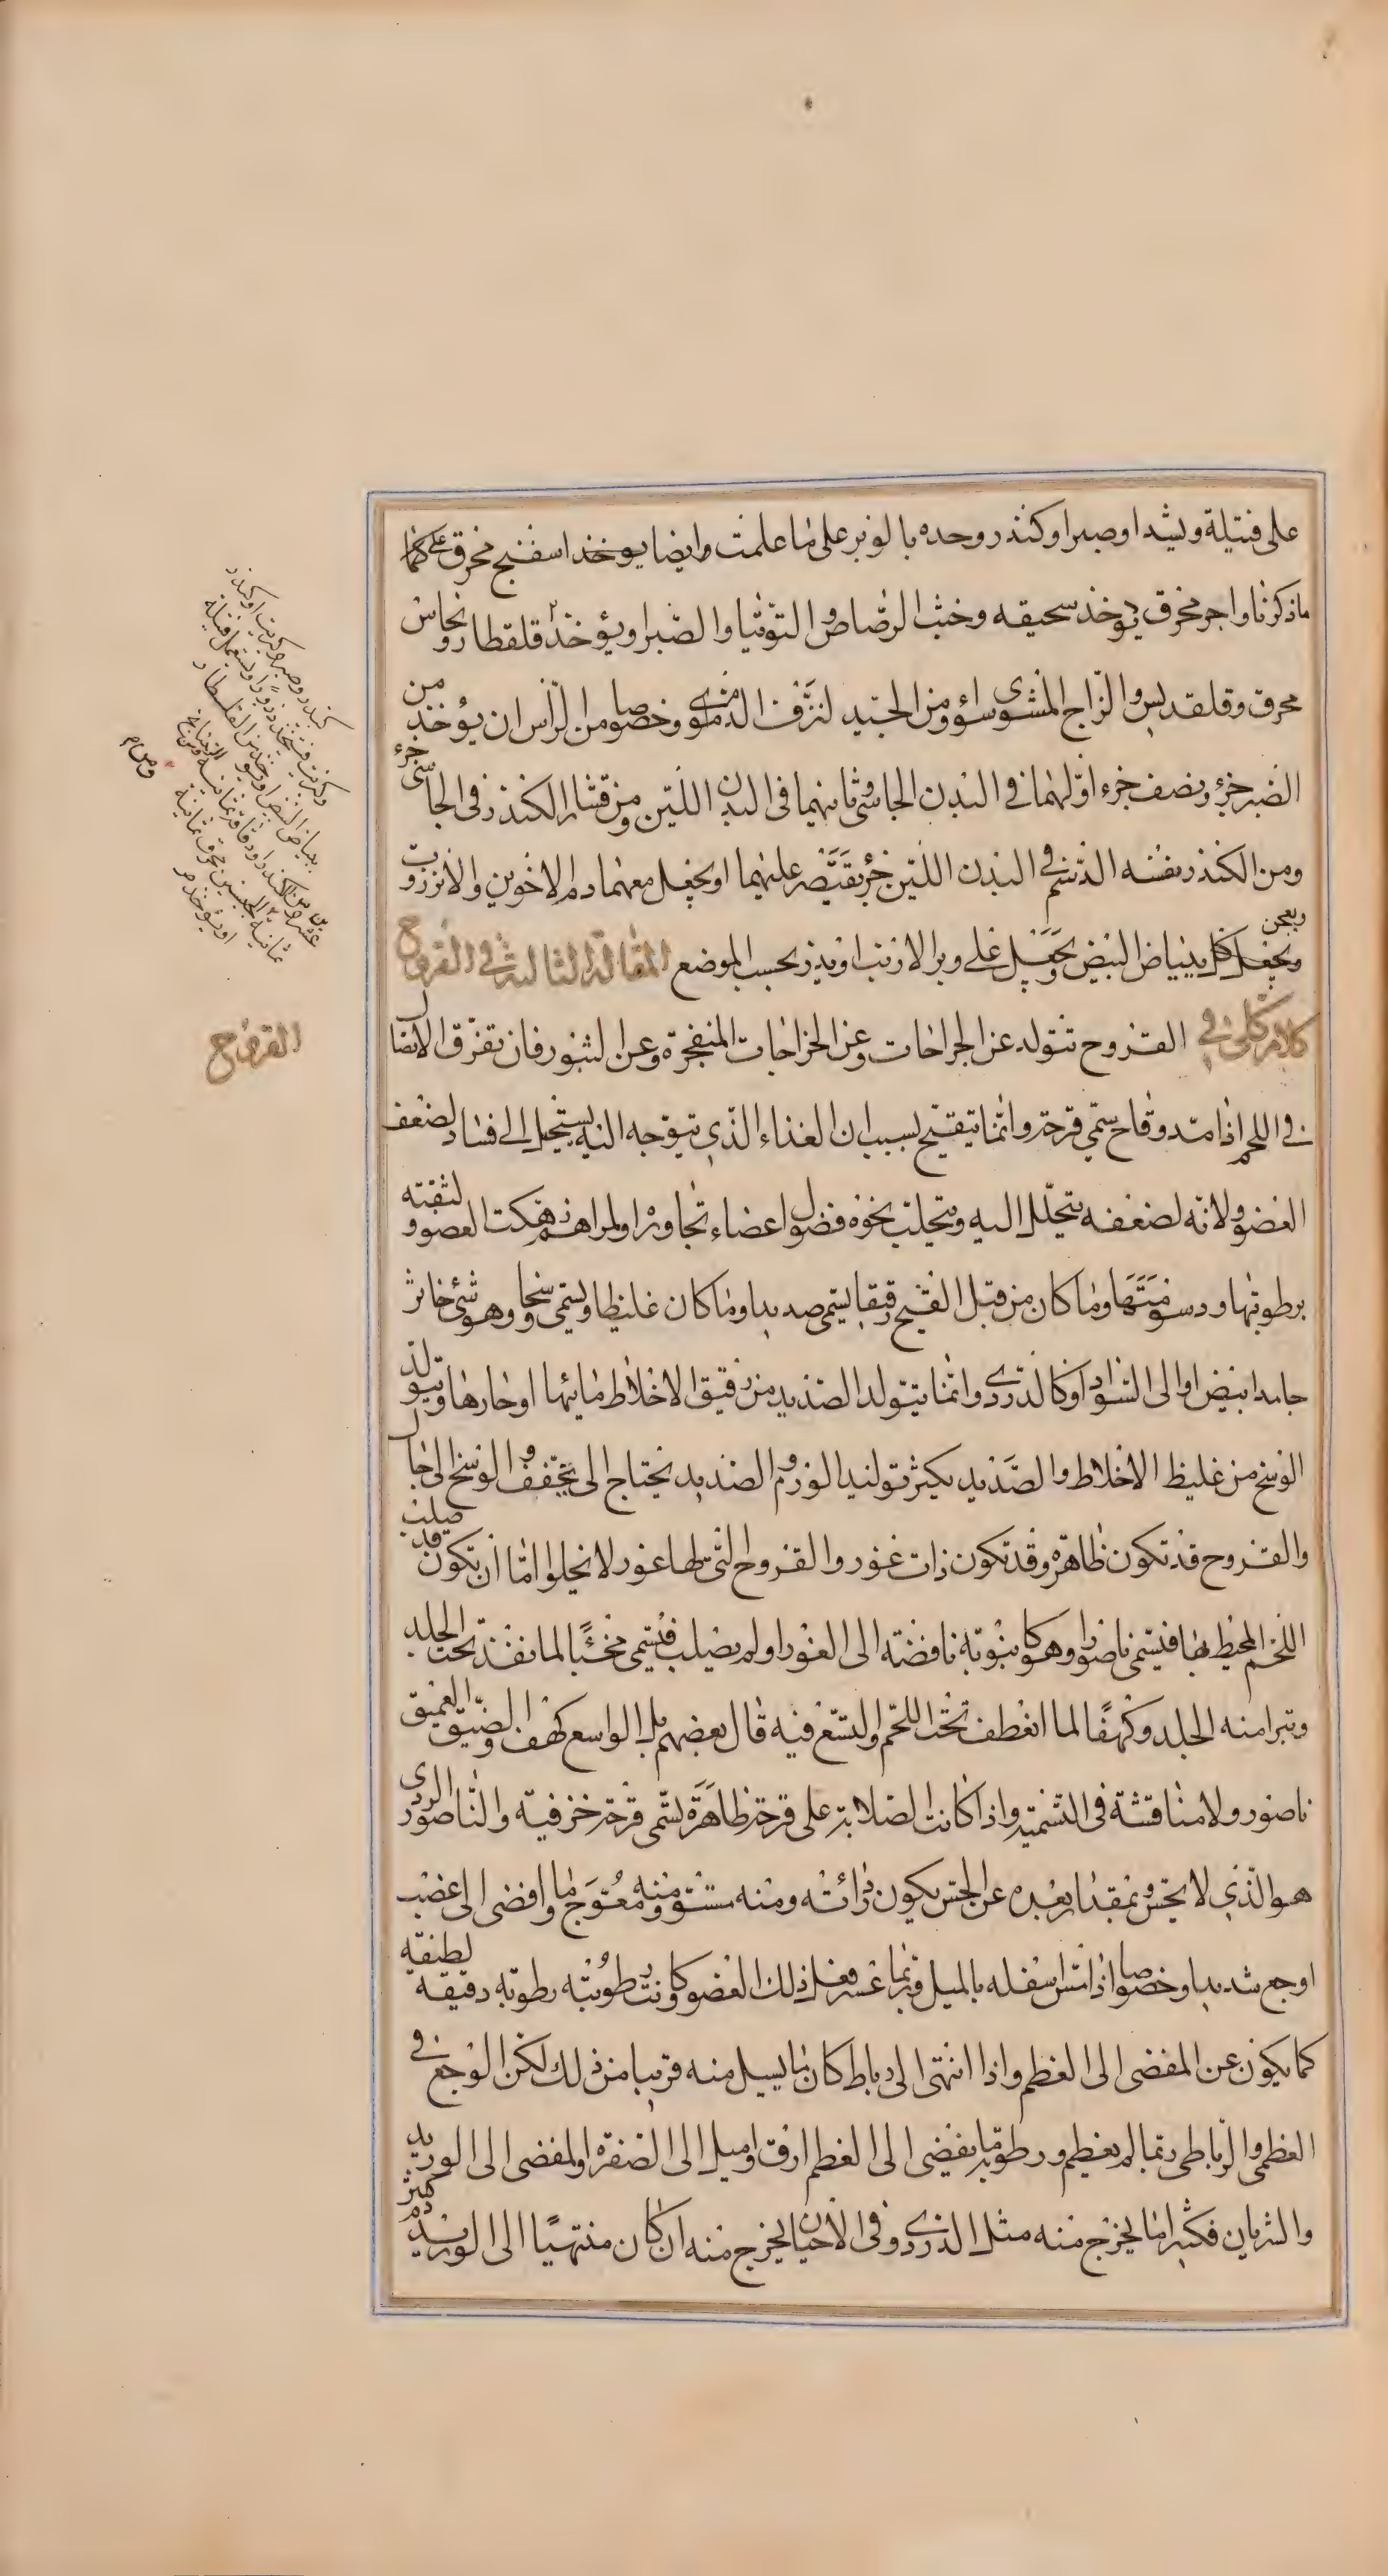 على فتيلة ويشد او صبر او كندر وحده بالوبر على ما علمت وايضا يوخذ اسفنج محرق على كما
ماذكرنا واجر محرق يوخذ سحيقه وخبث الرصاص والتوتيا والصبر او يؤخذ قلقطار ونحاس
محرق وقلقديس والزاج المشوى سواؤ ومن الجيد لنزف الدم وخصوصا من الراس ان يؤخذ من
الصبر جزؤ ونصف جزء اولهما في البدن الجاسى وثانيهما في البدن اللين ومن قشار الكندر في الجاسى جزء
ومن الكندر نفسه الدسم في البدن اللين جزؤ يقتصر عليهما او يجعل معهما دم الاخوين والانزروت
ويعجن
ويجعل كل ببياض البيض ويجعل على وبر الارنب او يذر بحسب الموضع المقالة الثالثة في القروح
كلام كلى في القروح تتولد عن الجراحات وعن الخراجات المنفجرة وعن البثور فان تفرق الاتصال
في اللحم اذا امتد وقاح سمى قرحة وانما يتقيح بسبب ان الغذاء الذي يتوجه اليه يستحيل الى فساد لضعف
العضو ولانه لضعفه يتحلل اليه ويتحلب نحوه فضول اعضاء تجاوره او لمراهم رهكت العضو ولثقته
برطوبتها ودسومتها وما كان من قبل القيح رقيقا يسمى صديدا وما كان غليظا ويسمى وسخا وهو شئ خاثر
جامد ابيض او الى السواد او كالدردى وانما يتولد الصديد من رقيق الاخلاط مائيها او حارها ويتولد
الوسخ من غليظ الاخلاط والصديد يكثر توليد الورم والصديد يحتاج الى تجفف والوسخ الى جال
والقروح قد تكون ظاهرة وقد تكون ذات غور والقروح التي لها غور لا يخلو اما ان تكون قد صلب
اللحم المحيط بها فيسمى ناصورا وهو كانبوبة نافضة الى الغور او لم يصلب فيسمى مخبئا لما نفذ تحت الجلد
وتبرا منه الجلد وكهفا لما انعطف تحت اللحم والتسع فيه قال بعضهم بل الواسع كهف والضيق العميق
ناصور ولا مناقشة في التسمية واذا كانت الصلابة على قرحة ظاهرة تسمى قرحة خزفية والناصور الردى
هو الذي لا يحس وبمقدار بعده عن الحس يكون رائته ومنه مستو ومنه معوج وما افضى الى عصب
اوجع شديدا وخصوصا اذا مس اسفله بالميل وربما عسر فعل ذلك العضو وكانت رطوبته رطوبة رقيقة لطيفة
كما يكون عن المفضى الى العظم واذا انتهى الى رباط كان ما يسيل منه قريبا من ذلك لكن الوجع في
العظمى والرباطى ربما لم يعظم ورطوبة ما يفضى الى العظم ارق واميل الى الصفرة والمفضى الى الوريد
والشريان فكثيرا ما يخرج منه مثل الدردى وفى الاحيان يخرج منه ان كان منتهيا الى الوريد دم كثير
القروح